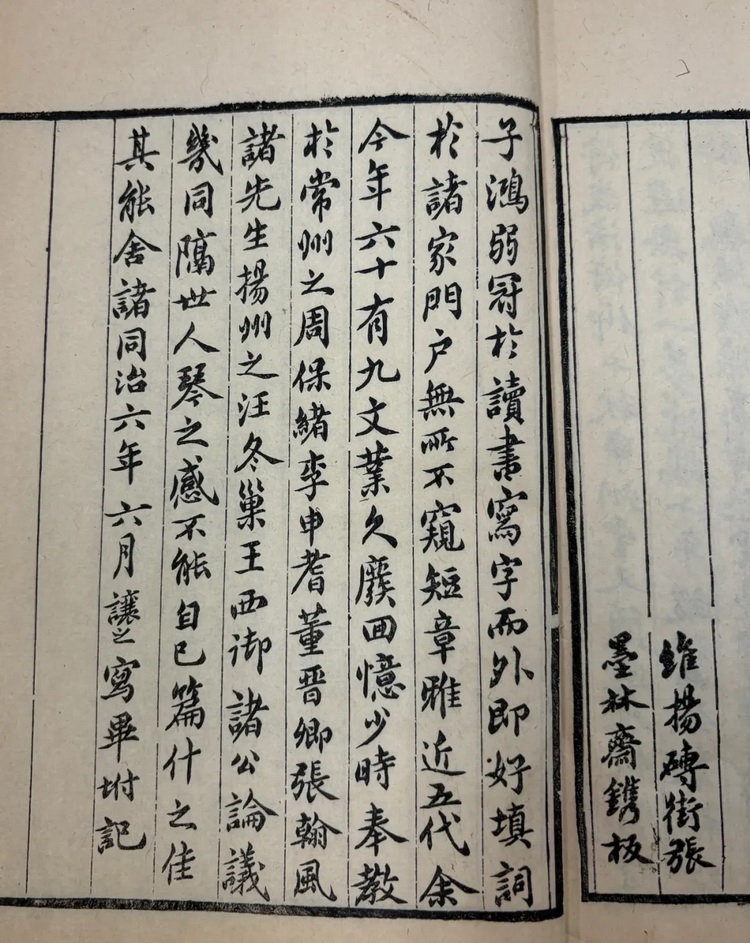 維揚磚街張
墨林齋鐫板
子鴻弱冠於讀書寫字而外即好填詞
於諸家門戶無所不窺短章雅近五代余
今年六十有九文業久廢回憶少時奉教
於常州之周保緒李申耆董晋卿張翰風
諸先生揚州之汪冬巢王西御諸公論議
幾同隔世人琴之感不能自已篇什之佳
其能舍諸同治六年六月讓之寫畢坿記